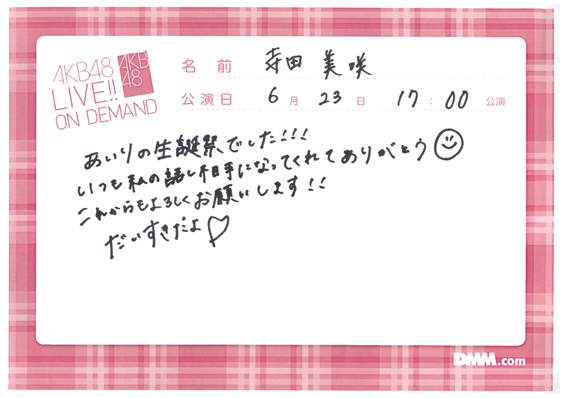 AKB48
LIVE!!
ON DEMAND
AKB
48
名前 寺田 美咲
公演日 6月23日 17:00 公演
あいりの生誕祭でした!!!
いつも私の話し相手になってくれてありがとう
これからもよろしくお願いします!!
だいすきだよ♡
DMM.com